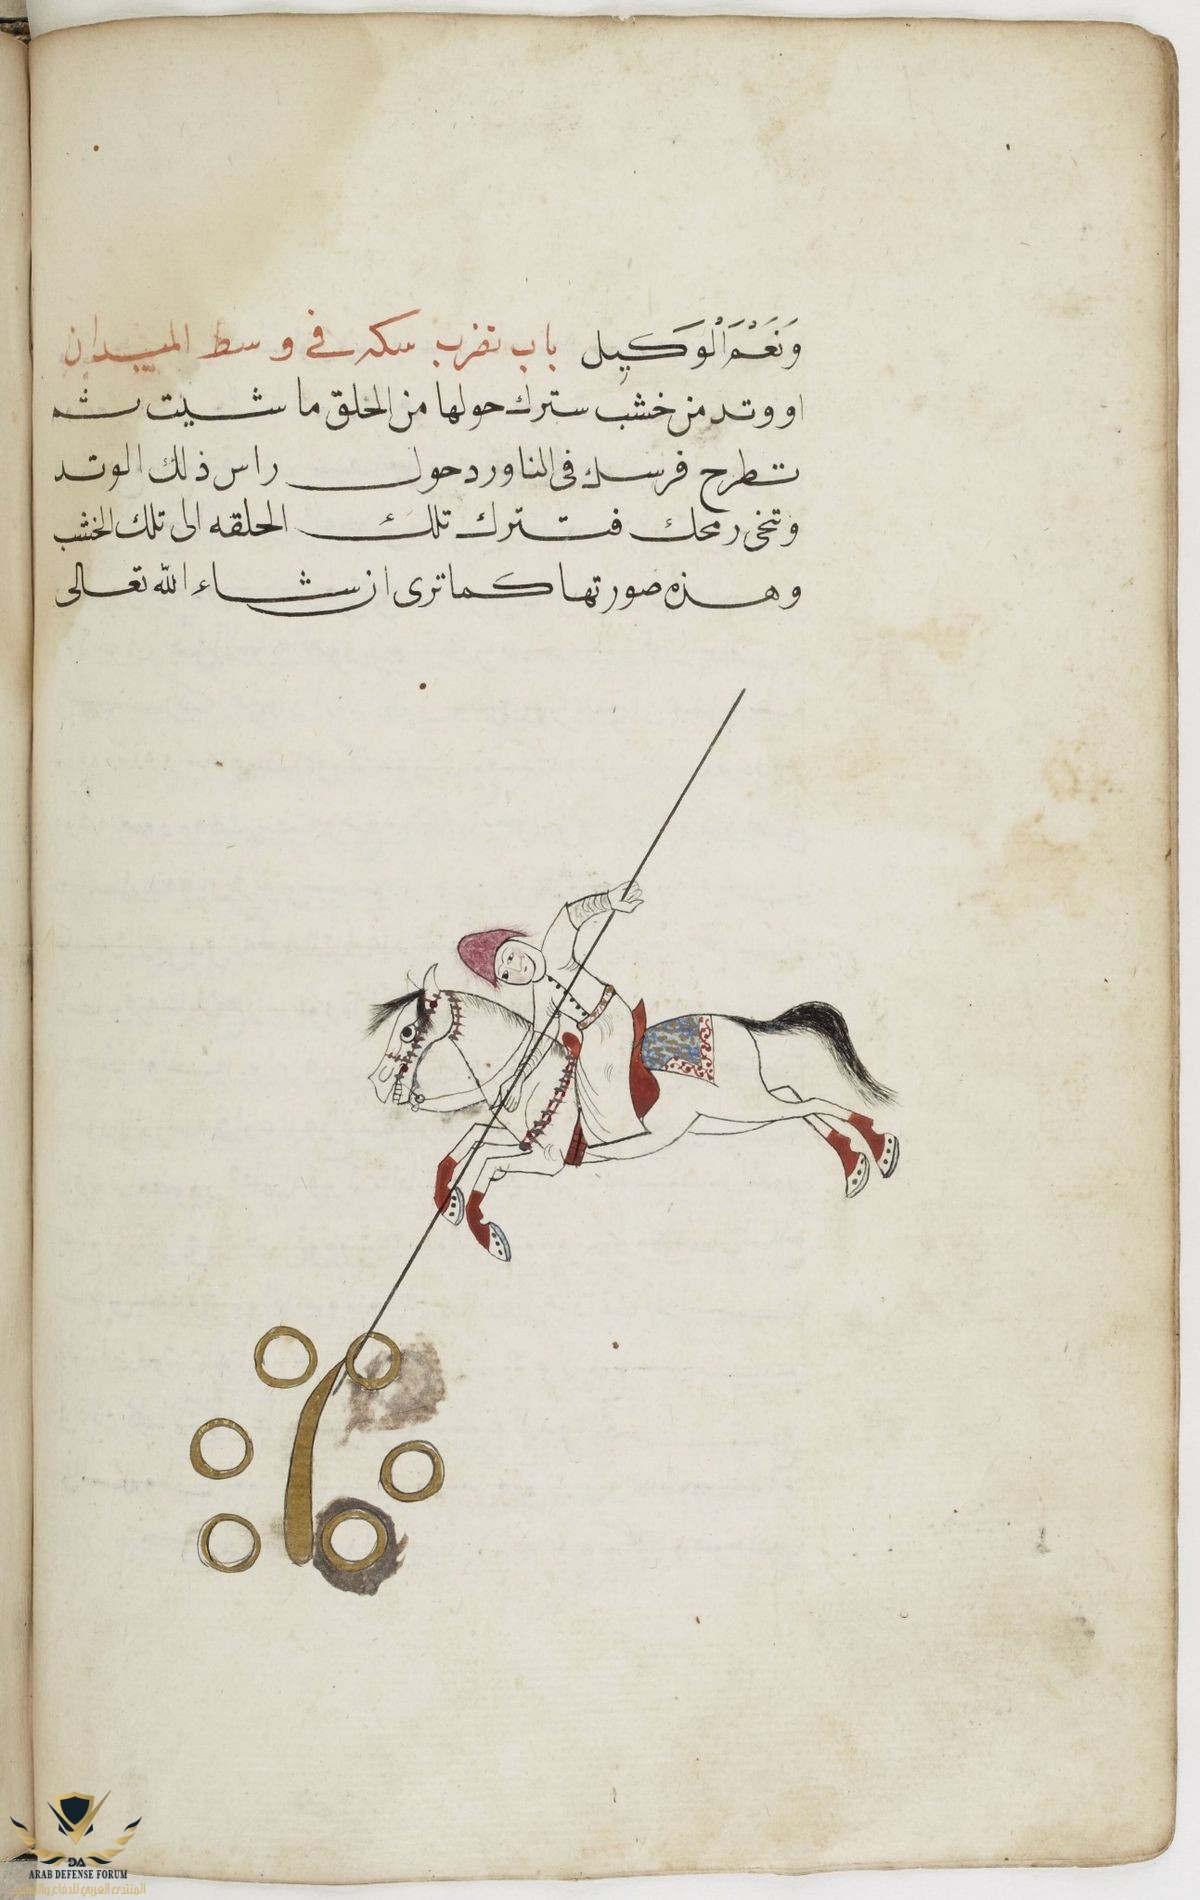 وَنَعْمَ الْوَكِيل باب تضرب سكه في وسط الميدان
او وتد من خشب سترك حولها من الحلق ما شيت ثم
تطرح فرسك في الناورد حول راس ذلك الوتد
وتخى رمحك فتترك تلك الحلقه الى تلك الخشب
وهذه صورتها كما ترى ان شاء الله تعالى
DA
ARAB DEFENSE FORUM
المنتدى العربي للدفاع والتسليح